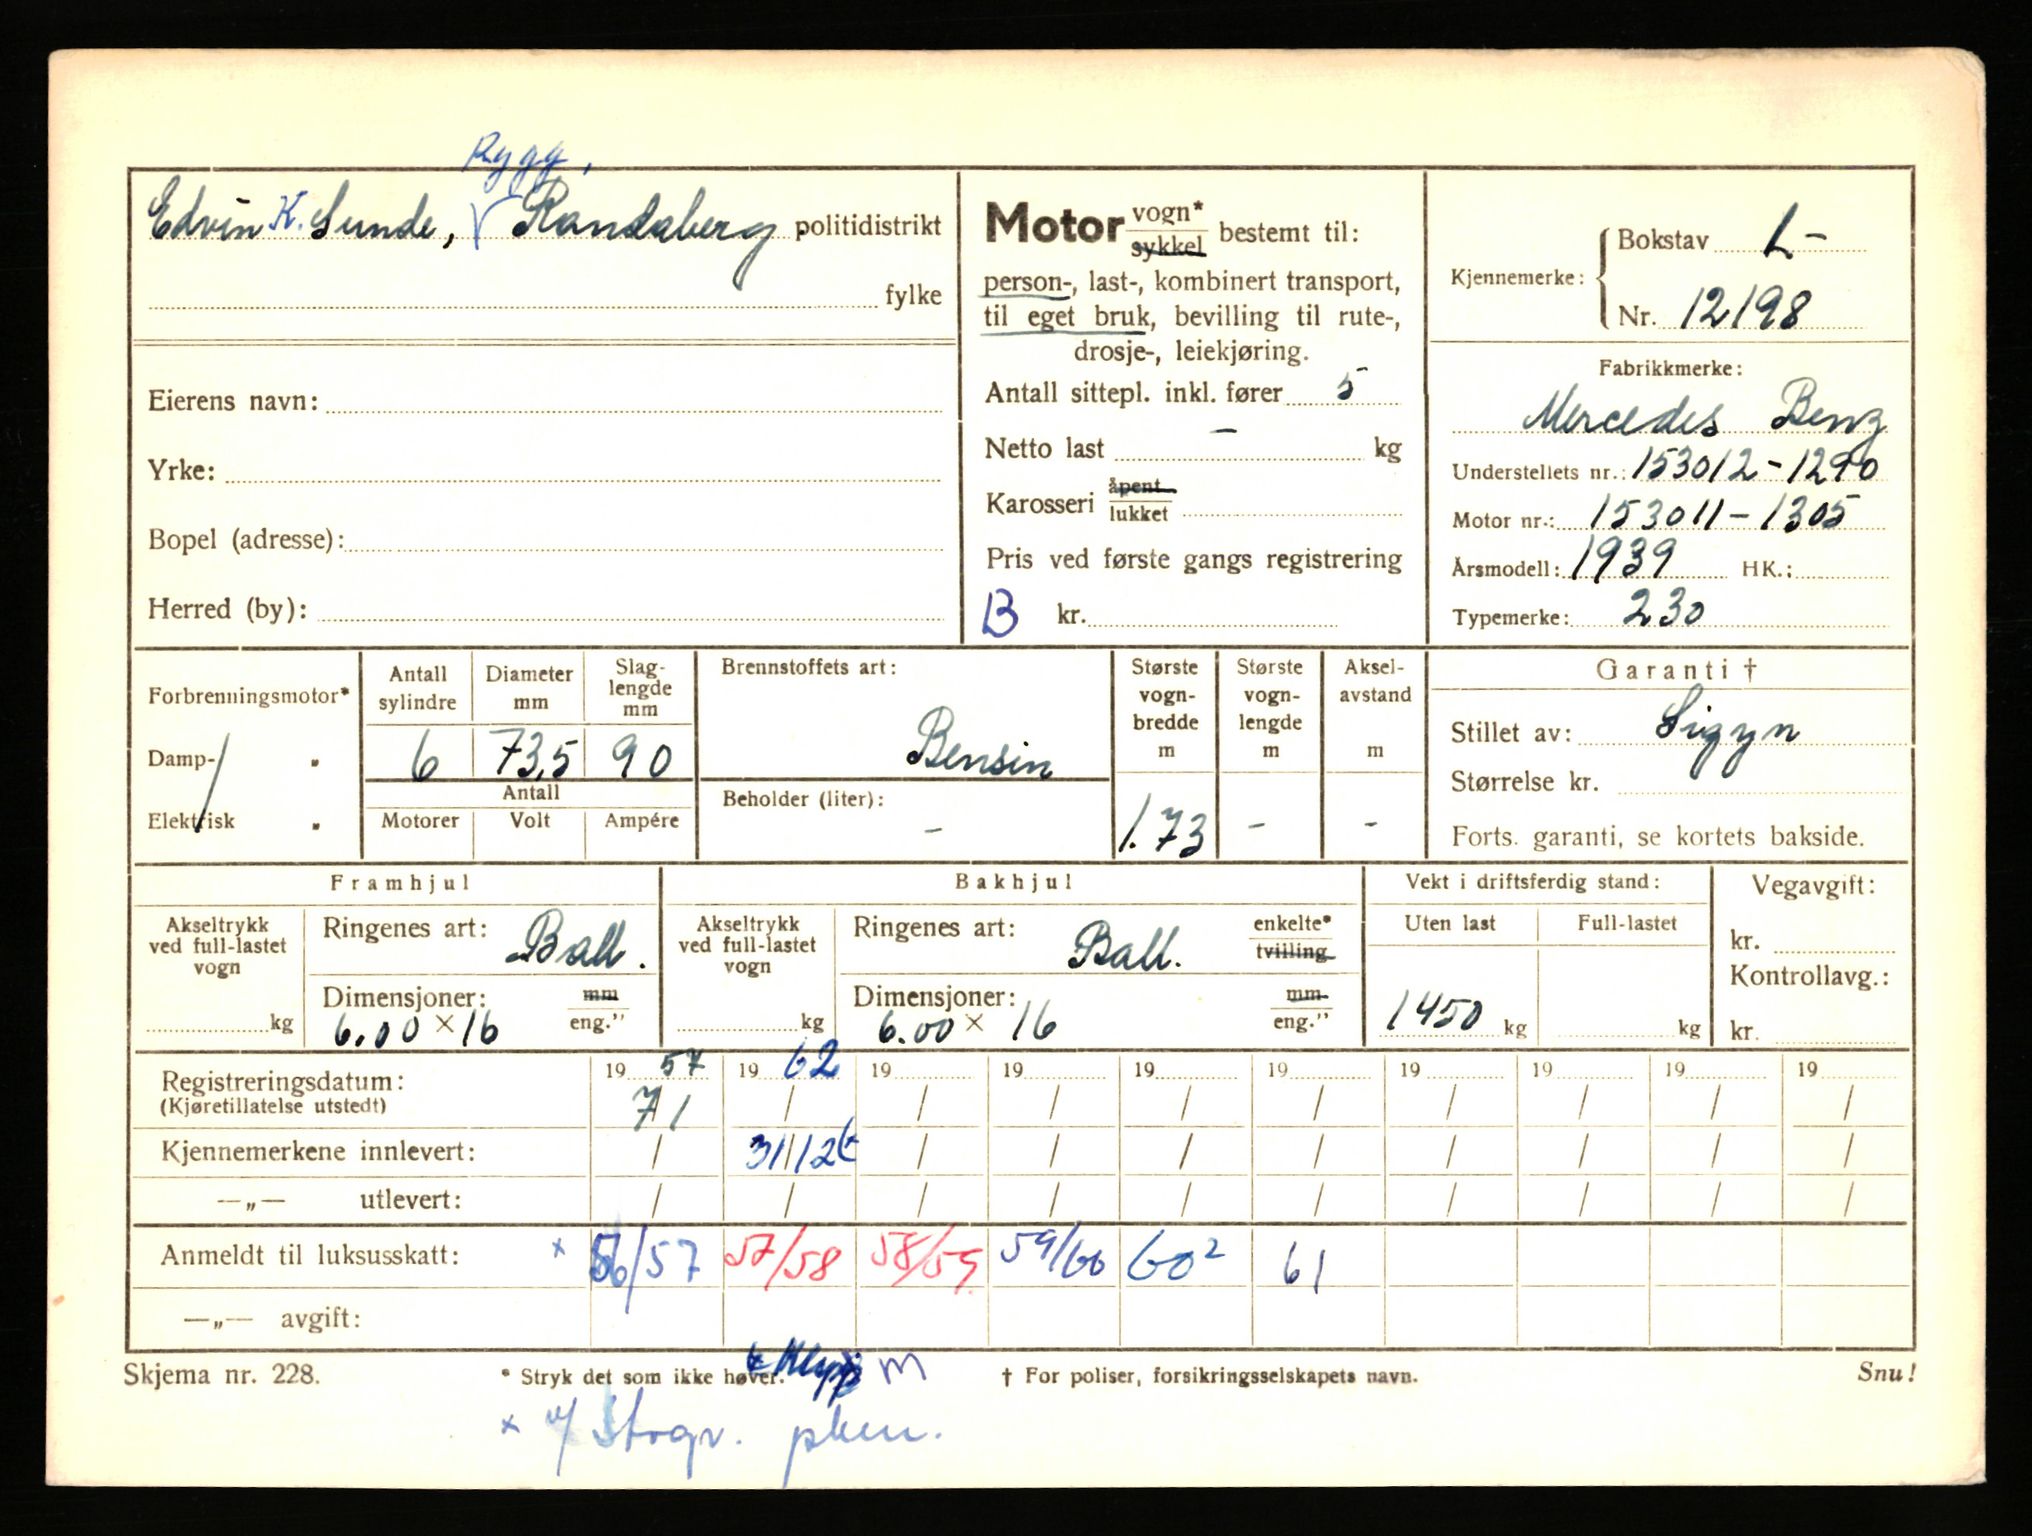 Rygg,
Edvin K. Sunde, Randaberg politidistrikt
fylke
Eierens navn:
Yrke:
Bopel (adresse):
Herred (by):
Motor vogn* sykkel bestemt til:
person-, last-, kombinert transport,
til eget bruk, bevilling til rute-,
drosje-, leiekjøring.
Antall sittepl. inkl. fører 5
Netto last - kg
Karosseri åpent lukket
Pris ved første gangs registrering
B kr.
Kjennemerke: Bokstav L-
Nr. 12198
Fabrikkmerke:
Mercedes Benz
Understellets nr.: 153012-1290
Motor nr.: 153011-1305
Årsmodell: 1939 HK.:
Typemerke: 230
Forbrenningsmotor*
Damp- "
Elektrisk "
Antall sylindre
Diameter mm
Slag-lengde mm
6 73,5 90
Antall
Motorer Volt Ampére
Brennstoffets art:
Bensin
Beholder (liter):
-
Største vogn-bredde m
1.73
Største vogn-lengde m
-
Aksel-avstand m
-
Garanti †
Stillet av: Sigyn
Størrelse kr.
Forts. garanti, se kortets bakside.
Framhjul
Akseltrykk ved full-lastet vogn
kg
Ringenes art: Ball.
Dimensjoner: mm
6.00 × 16 eng."
Bakhjul
Akseltrykk ved full-lastet vogn
kg
Ringenes art: Ball. enkelte* tvilling
Dimensjoner: mm
6.00 × 16 eng."
Vekt i driftsferdig stand:
Uten last Full-lastet
1450 kg kg
Vegavgift:
kr.
Kontrollavg.:
kr.
Registreringsdatum: 19 57 19 62 19 19 19 19 19 19 19 19
(Kjøretillatelse utstedt) 7/1 / / / / / / / / /
Kjennemerkene innlevert: / 31/12 / / / / / / / /
—„— utlevert: / / / / / / / / / /
Anmeldt til luksusskatt: × 56/57 57/58 58/59 59/60 60² 61
—„— avgift:
Skjema nr. 228. * Stryk det som ikke høver. m † For poliser, forsikringsselskapets navn. Snu!
×